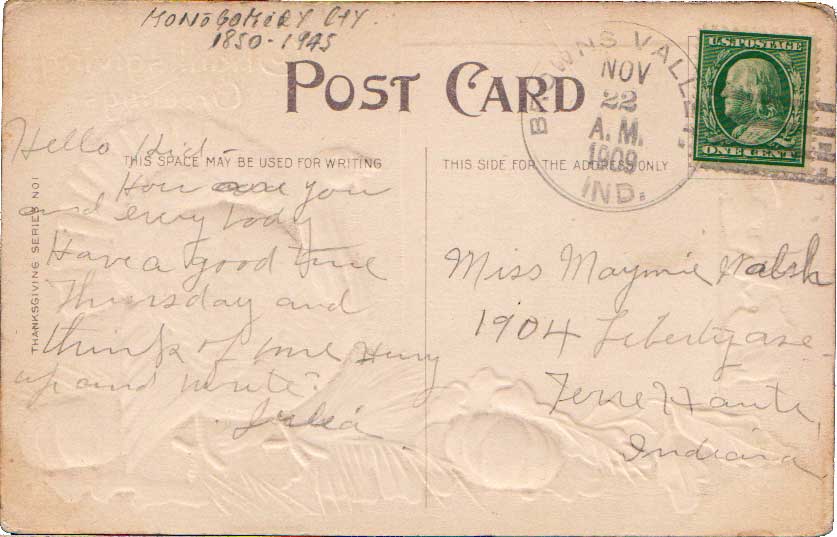 MONOGOMERY CTY.
1850-1945
POST CARD
BROWNS VALLEY
NOV
22
A.M.
1909
IND.
U.S. POSTAGE
ONE CENT
THIS SPACE MAY BE USED FOR WRITING
THIS SIDE FOR THE ADDRESS ONLY
THANKSGIVING SERIES NO1
Hello Kid-
How are you
and every body
Have a good time
Thursday and
think of me Hurry
up and write?
Julia
Miss Maymie Walsh
1904 Liberty ave
Terre Haute,
Indiana